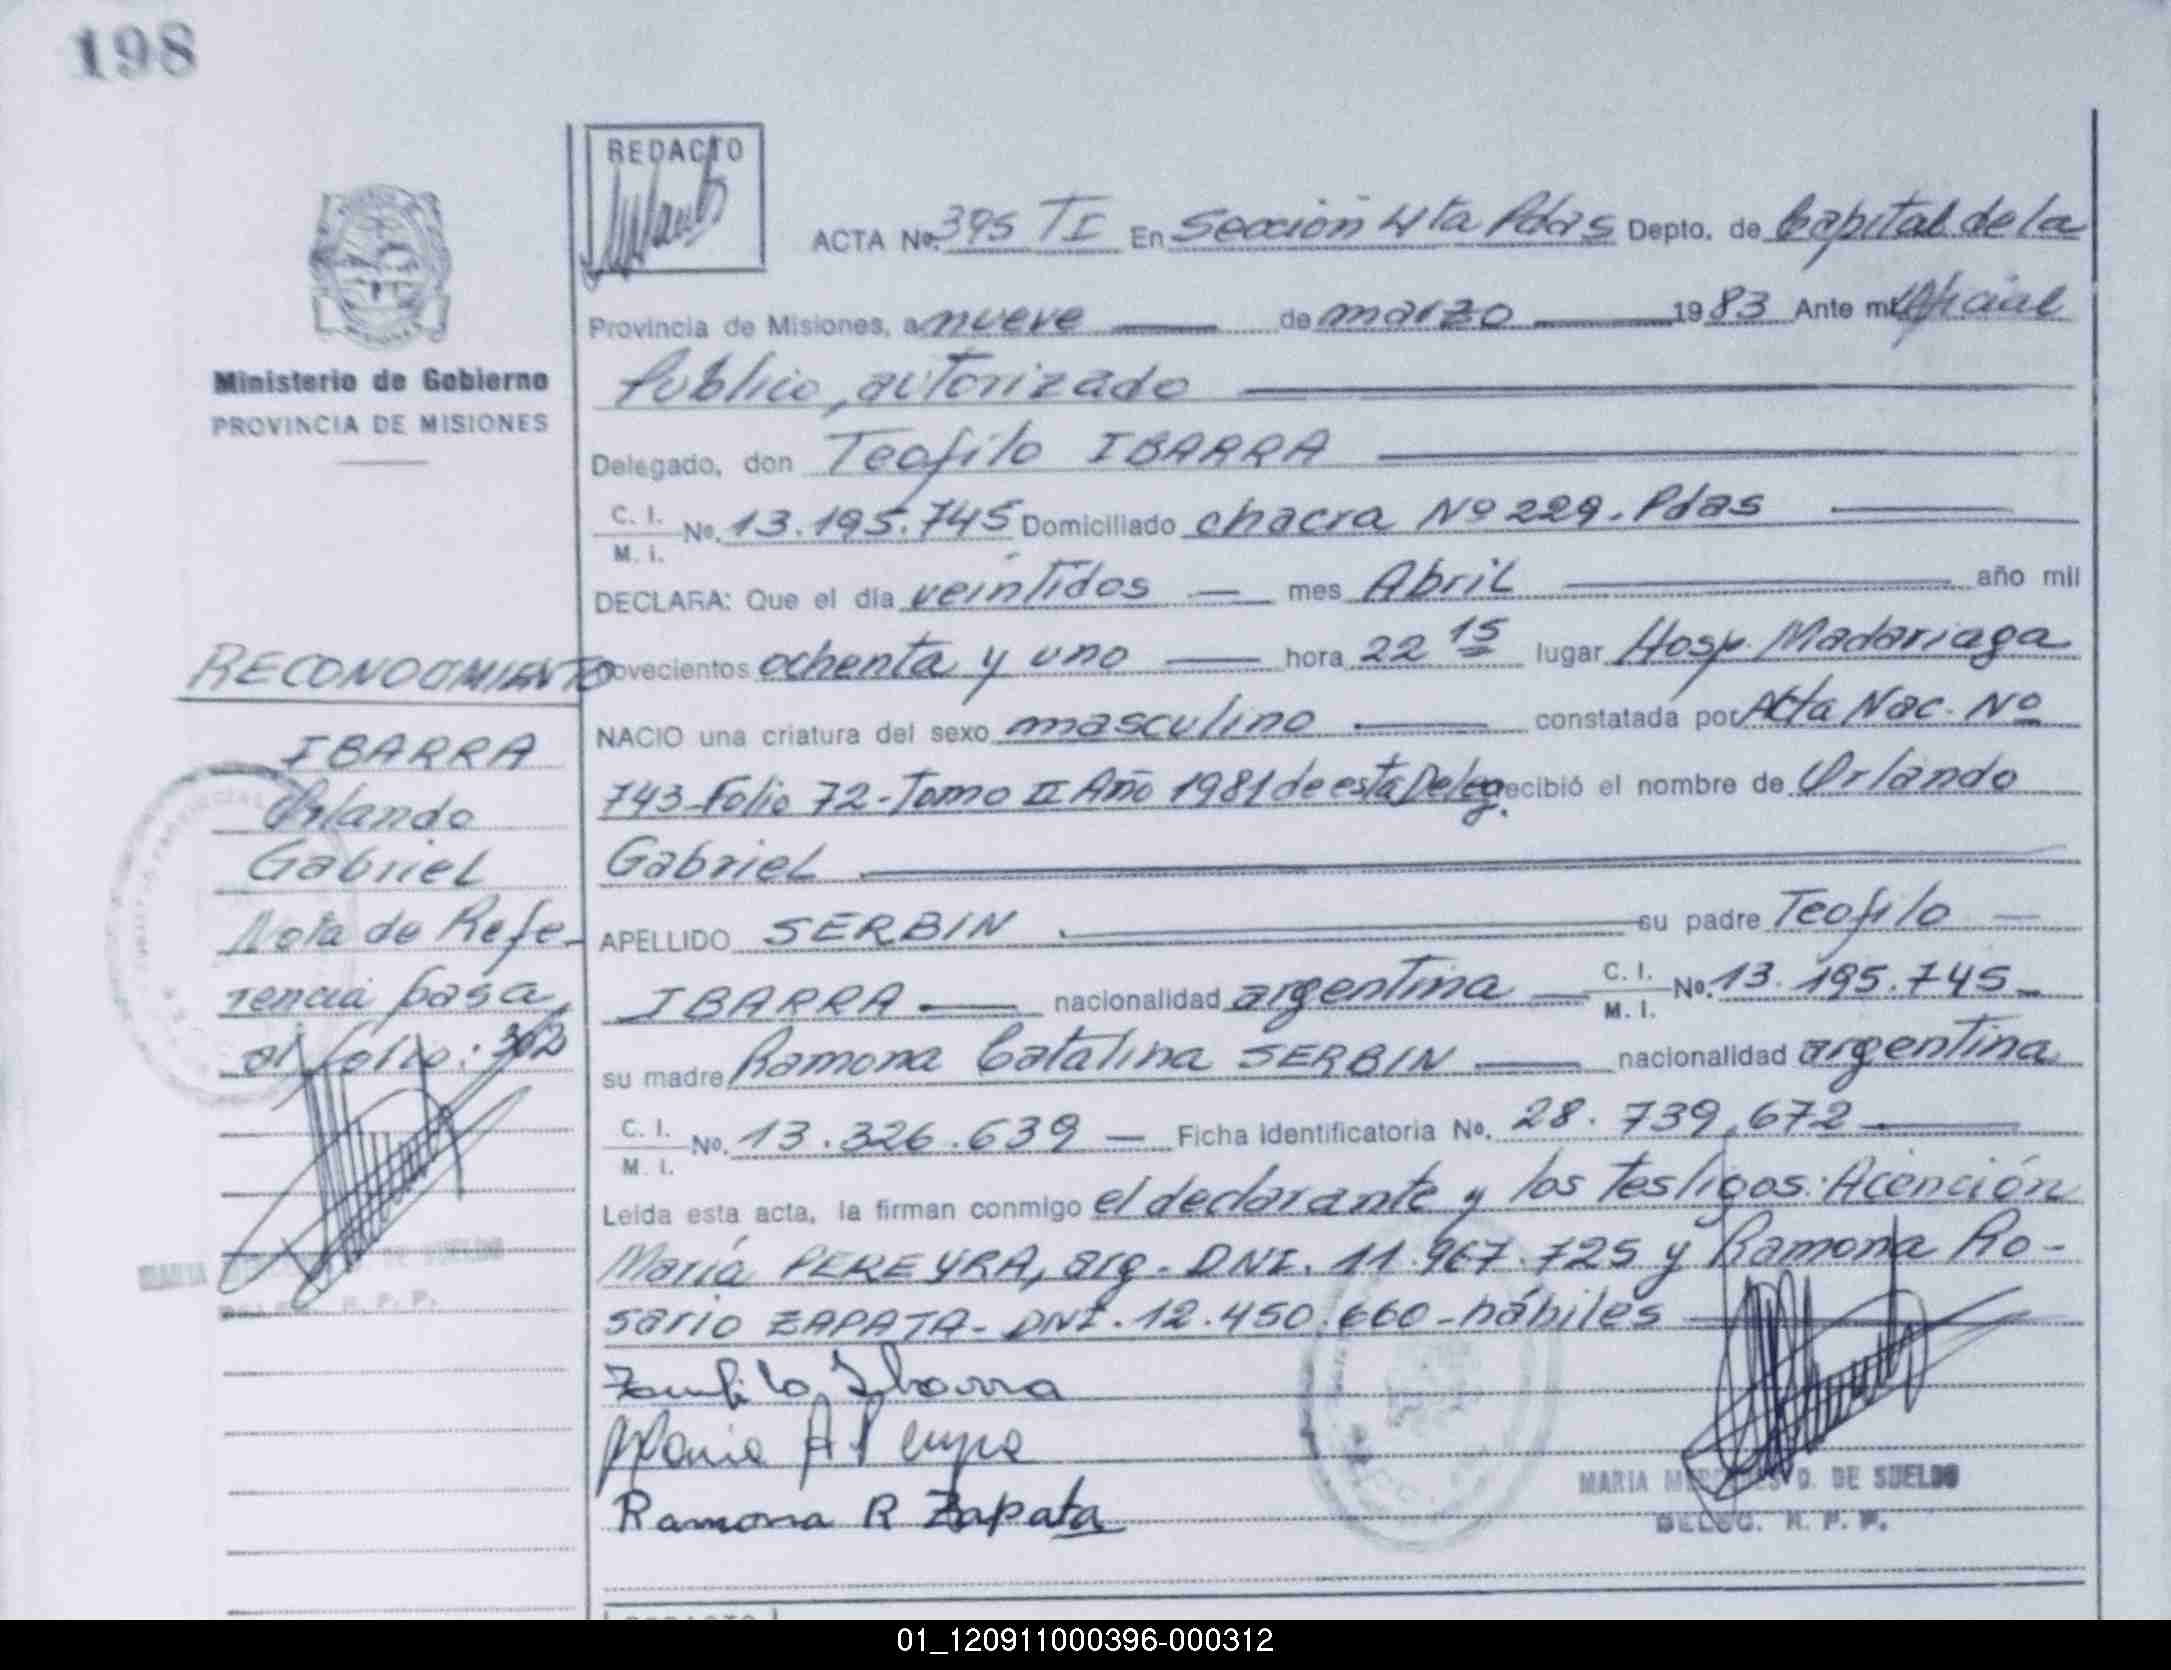 198
REDACTO
ACTA No. 395 TI En Sección 4ta Pdas Depto. de Capital de la
Provincia de Misiones, a nueve de marzo 1983 Ante mi Oficial
Público, autorizado
Delegado, don Teofilo IBARRA
C. I.
M. I. No. 13.195.745 Domiciliado chacra Nº 229. Pdas
DECLARA: Que el día veintidos mes Abril año mil
novecientos ochenta y uno hora 22 15 lugar Hosp. Madariaga
NACIO una criatura del sexo masculino constatada por Acta Nac. Nº
743-Folio 72-Tomo II Año 1981 de esta Deleg. recibió el nombre de Orlando
Gabriel
APELLIDO SERBIN su padre Teofilo
IBARRA nacionalidad argentina C. I.
M. I. No. 13.195.745
su madre Ramona Catalina SERBIN nacionalidad argentina
C. I.
M. I. No. 13.326.639 Ficha Identificatoria No. 28.739.672
Leida esta acta, la firman conmigo el declarante y los testigos: Acención
María PEREYRA, arg. DNI. 11.967.725 y Ramona Ro-
sario ZAPATA- DNI. 12.450.660-hábiles
Teofilo Ibarra
Maria A
Ramona R Zapata
MARIA MERCEDES D. DE SUELDO
DELEG. R. P. P.
Ministerio de Gobierno
PROVINCIA DE MISIONES
RECONOCIMIENTO
IBARRA
Orlando
Gabriel
Nota de Refe-
rencia pasa
al folio: 302
MARIA DE SUELDO
DELEG. R. P. P.
REDACTO
01_120911000396-000312